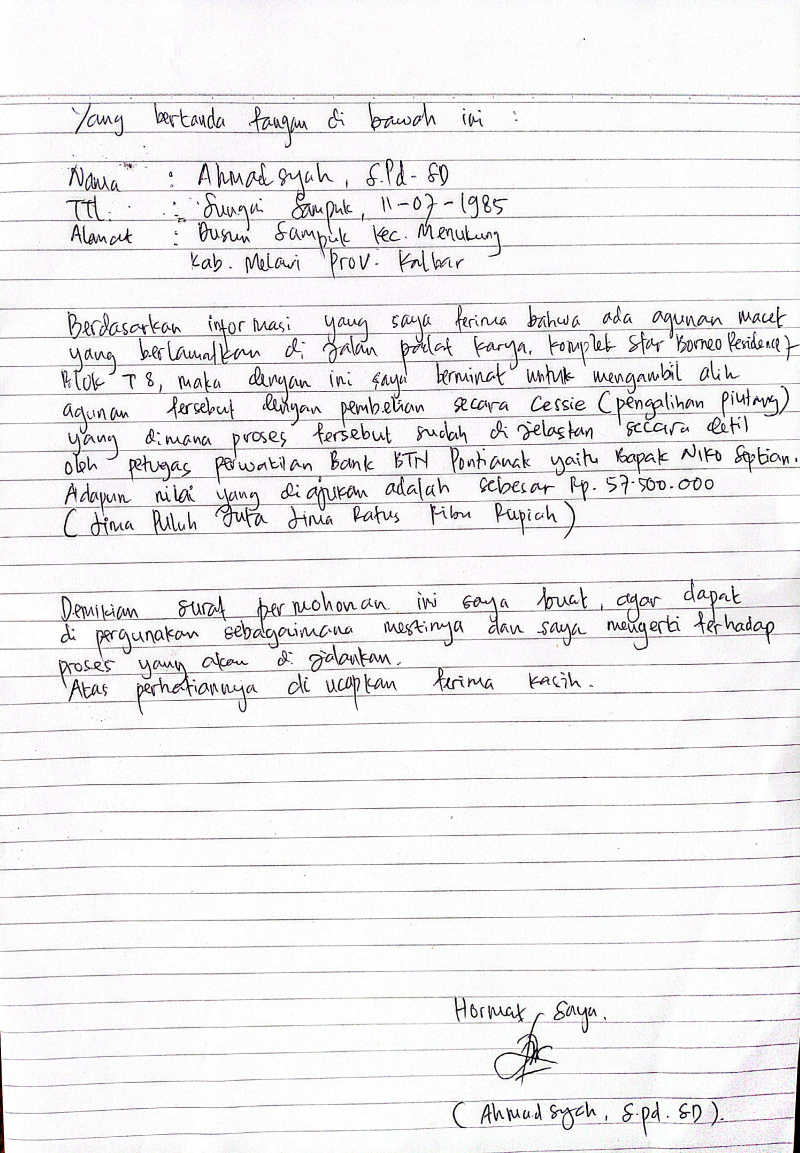 Yang bertanda tangan di bawah ini :
Nama : Ahmad syah, S.Pd-SD
TTL. : Sungai Sampuk, 11-07-1985
Alamat : Dusun Sampuk Kec. Menukung
Kab. Melawi Prov. Kalbar
Berdasarkan informasi yang saya terima bahwa ada agunan macet
yang berlamatkan di Jalan padat karya, komplek Star Borneo Residence 7
Blok T 8, maka dengan ini saya berminat untuk mengambil alih
agunan tersebut dengan pembelian secara Cessie (pengalihan piutang)
yang dimana proses tersebut sudah di jelaskan secara detil
oleh petugas perwakilan Bank BTN Pontianak yaitu Bapak Niko Septian.
Adapun nilai yang di ajukan adalah sebesar Rp. 57.500.000
(Lima Puluh Juta Lima Ratus Ribu Rupiah)
Demikian surat permohonan ini saya buat, agar dapat
di pergunakan sebagaimana mestinya dan saya mengerti terhadap
proses yang akan di jalankan.
Atas perhatiannya di ucapkan terima kasih.
Hormat Saya.
(Ahmad syah, S.pd. SD).